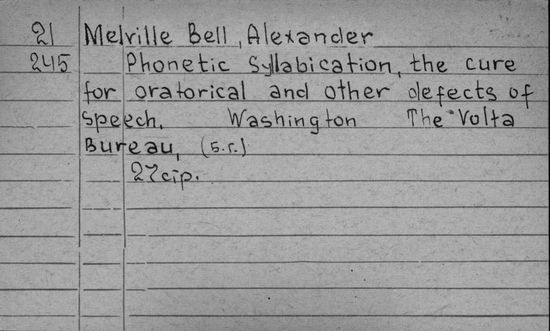 21 Melville Bell, Alexander
245 Phonetic Syllabication, the cure
for oratorical and other defects of
Speech. Washington The Volta
Bureau, (s.r.)
27 cip.